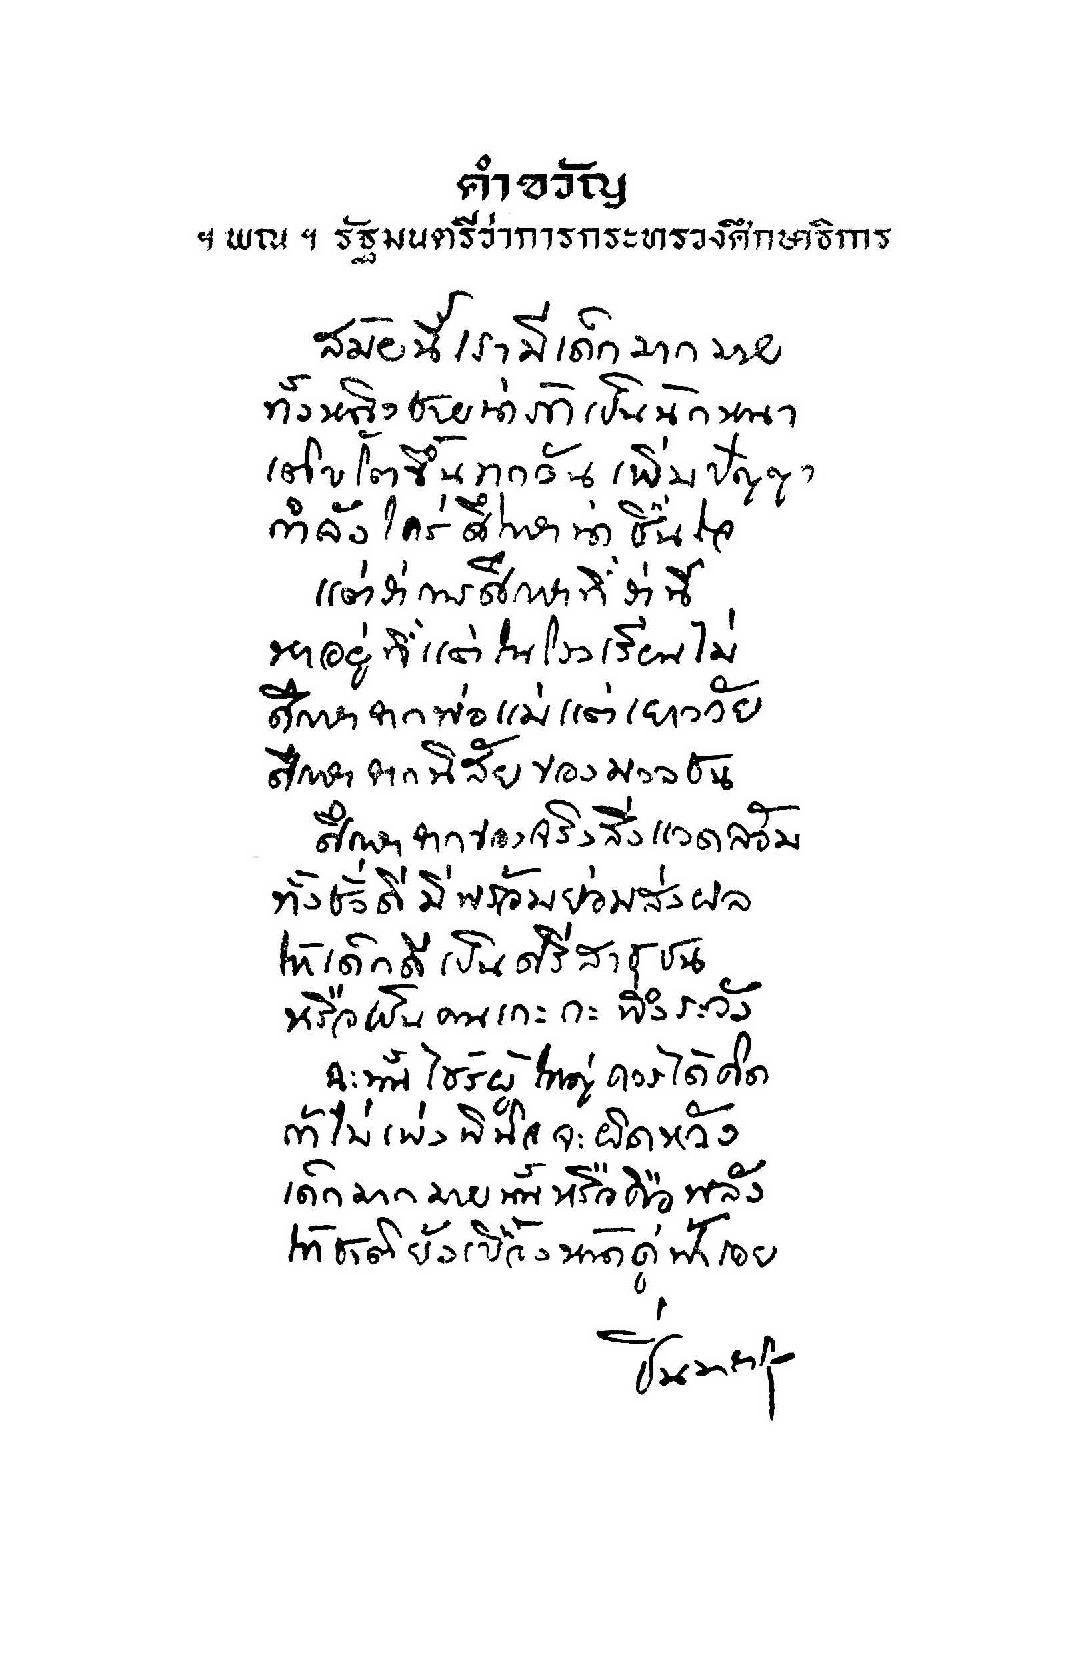 คำขวัญ
ฯ พณ ฯ รัฐมนตรีว่าการกระทรวงศึกษาธิการ
สมัยนี้เรามีเด็กมากมาย
ทั้งหญิงชายน่ารักเป็นนักหนา
เติบโตขึ้นทุกวันเพิ่มปัญญา
กำลังใคร่ศึกษาน่าชื่นใจ
แต่ว่าการศึกษาที่ว่านี้
หาอยู่ที่แต่ในโรงเรียนไม่
ศึกษาจากพ่อแม่แต่เยาววัย
ศึกษาจากนิสัยของมวลชน
ศึกษาจากของจริงสิ่งแวดล้อม
ทั้งชั่วดีมีพร้อมย่อมส่งผล
ให้เด็กดีเป็นศรีสาธุชน
หรือเป็นคนเกะกะพึงระวัง
ฉะนั้นไซร้ผู้ใหญ่ควรได้คิด
ถ้าไม่เพ่งพินิจจะผิดหวัง
เด็กมากมายนั้นหรือคือพลัง
ให้ชาติยัง นาคู่ฟ้าเอย